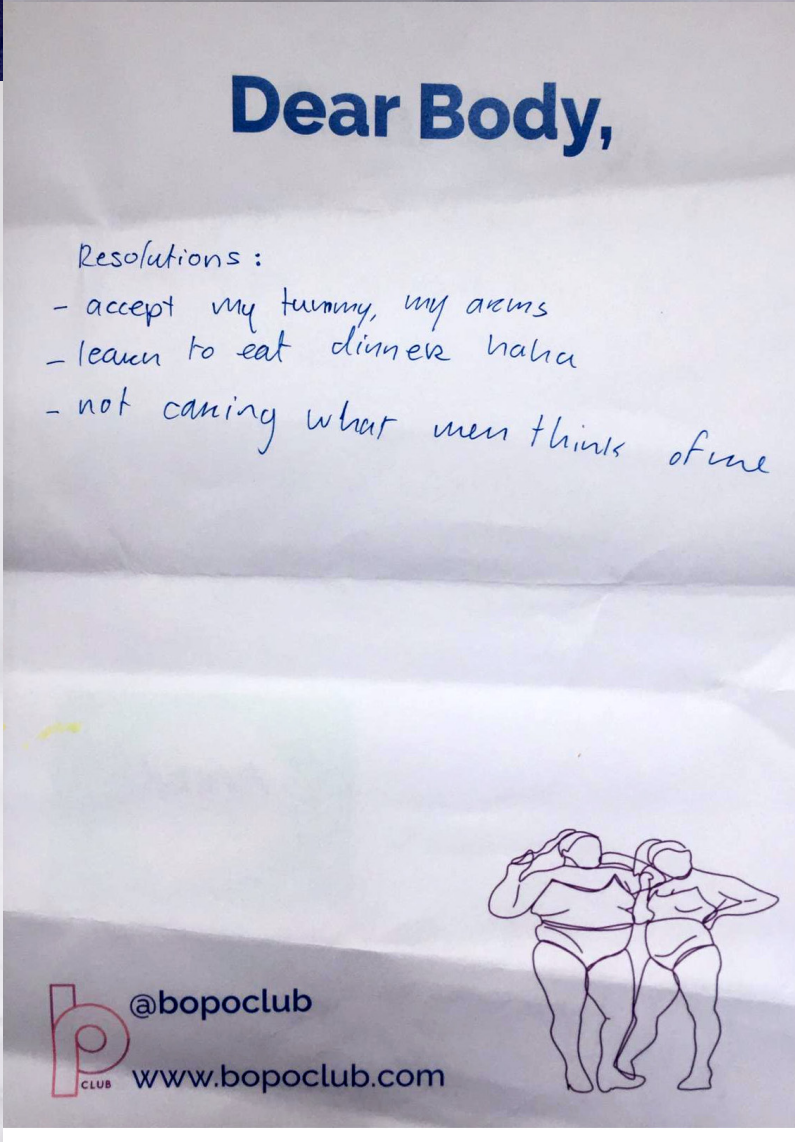 Dear Body,
Resolutions :
- accept my tummy, my arms
- learn to eat dinner haha
- not caring what men think of me
@bopoclub
CLUB
www.bopoclub.com